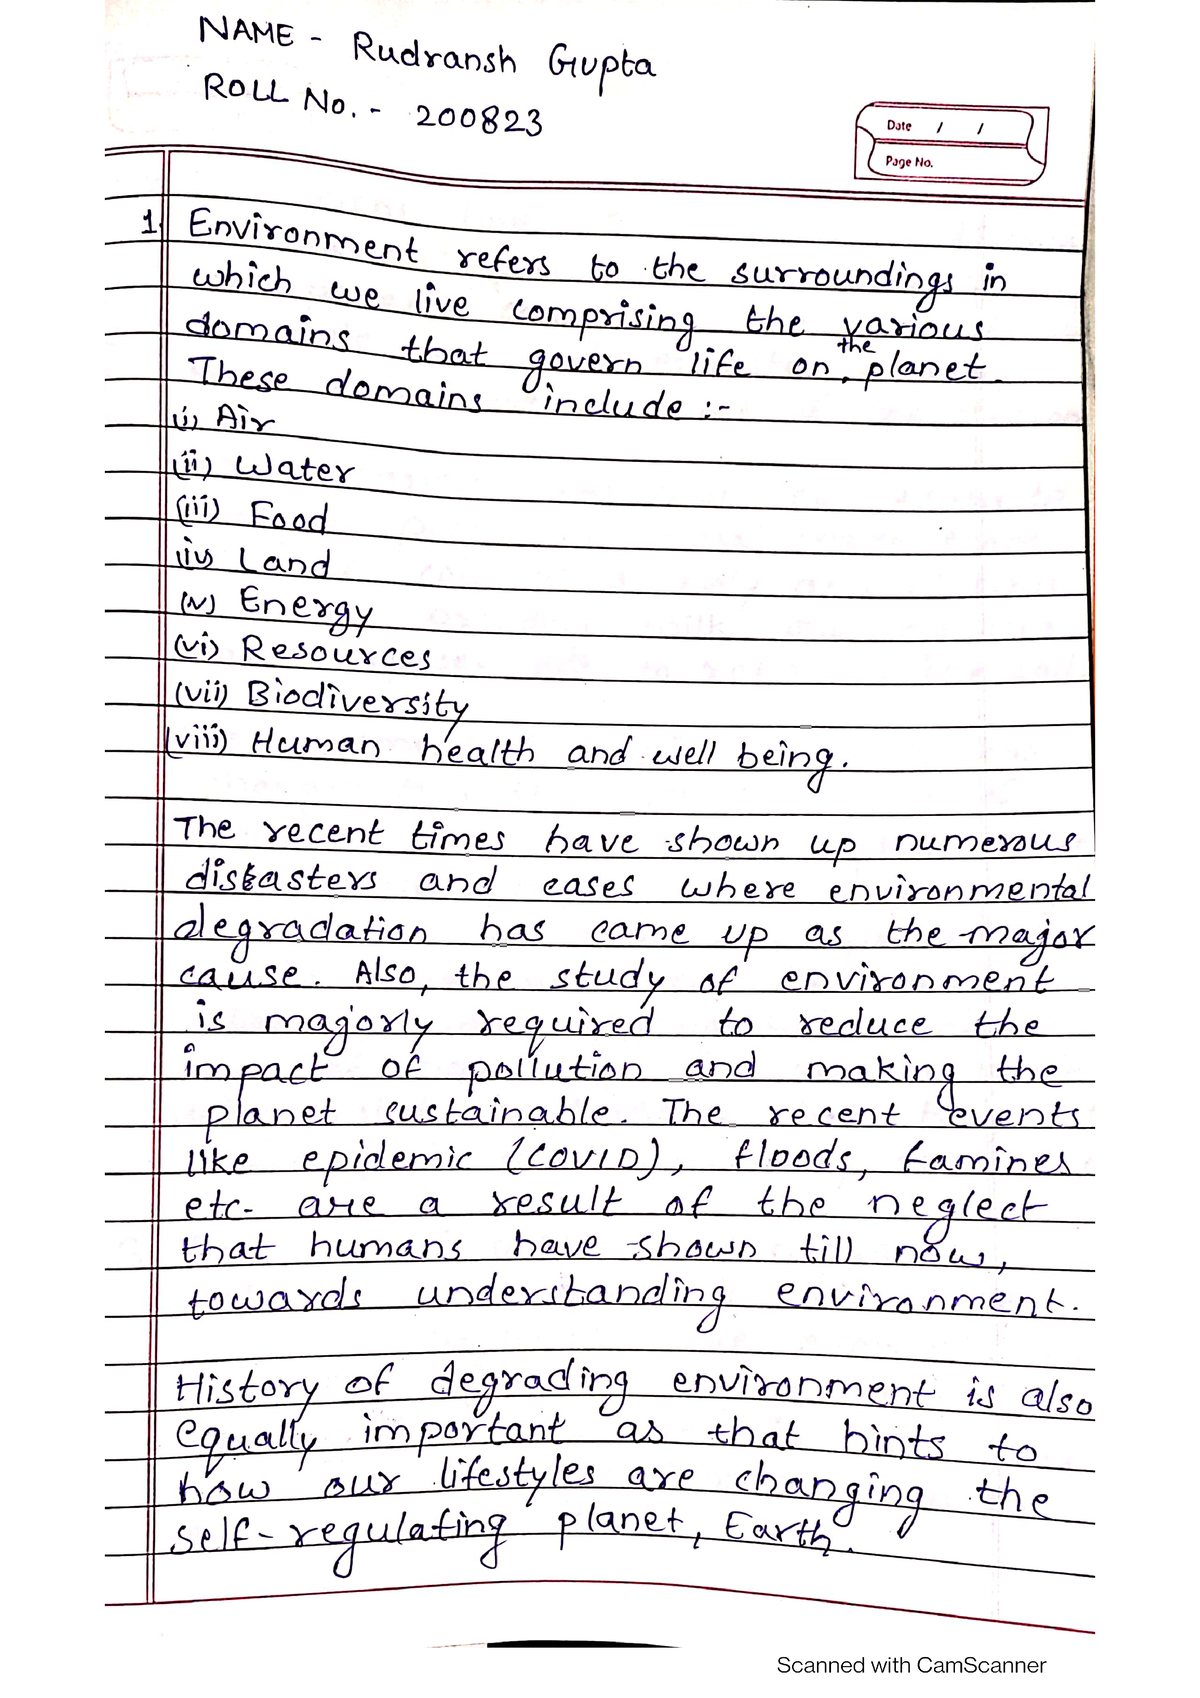 NAME - Rudransh Gupta
ROLL No. - 200823
Date / /
Page No.
1. Environment refers to the surroundings in
which we live comprising the various
domains that govern life on the planet.
These domains include :-
(i) Air
(ii) Water
(iii) Food
(iv) Land
(v) Energy
(vi) Resources
(vii) Biodiversity
(viii) Human health and well being.
The recent times have shown up numerous
disasters and cases where environmental
degradation has came up as the major
cause. Also, the study of environment
is majorly required to reduce the
impact of pollution and making the
planet sustainable. The recent events
like epidemic (COVID), floods, famines
etc. are a result of the neglect
that humans have shown till now,
towards understanding environment.
History of degrading environment is also
equally important as that hints to
how our lifestyles are changing the
self-regulating planet, Earth.
Scanned with CamScanner